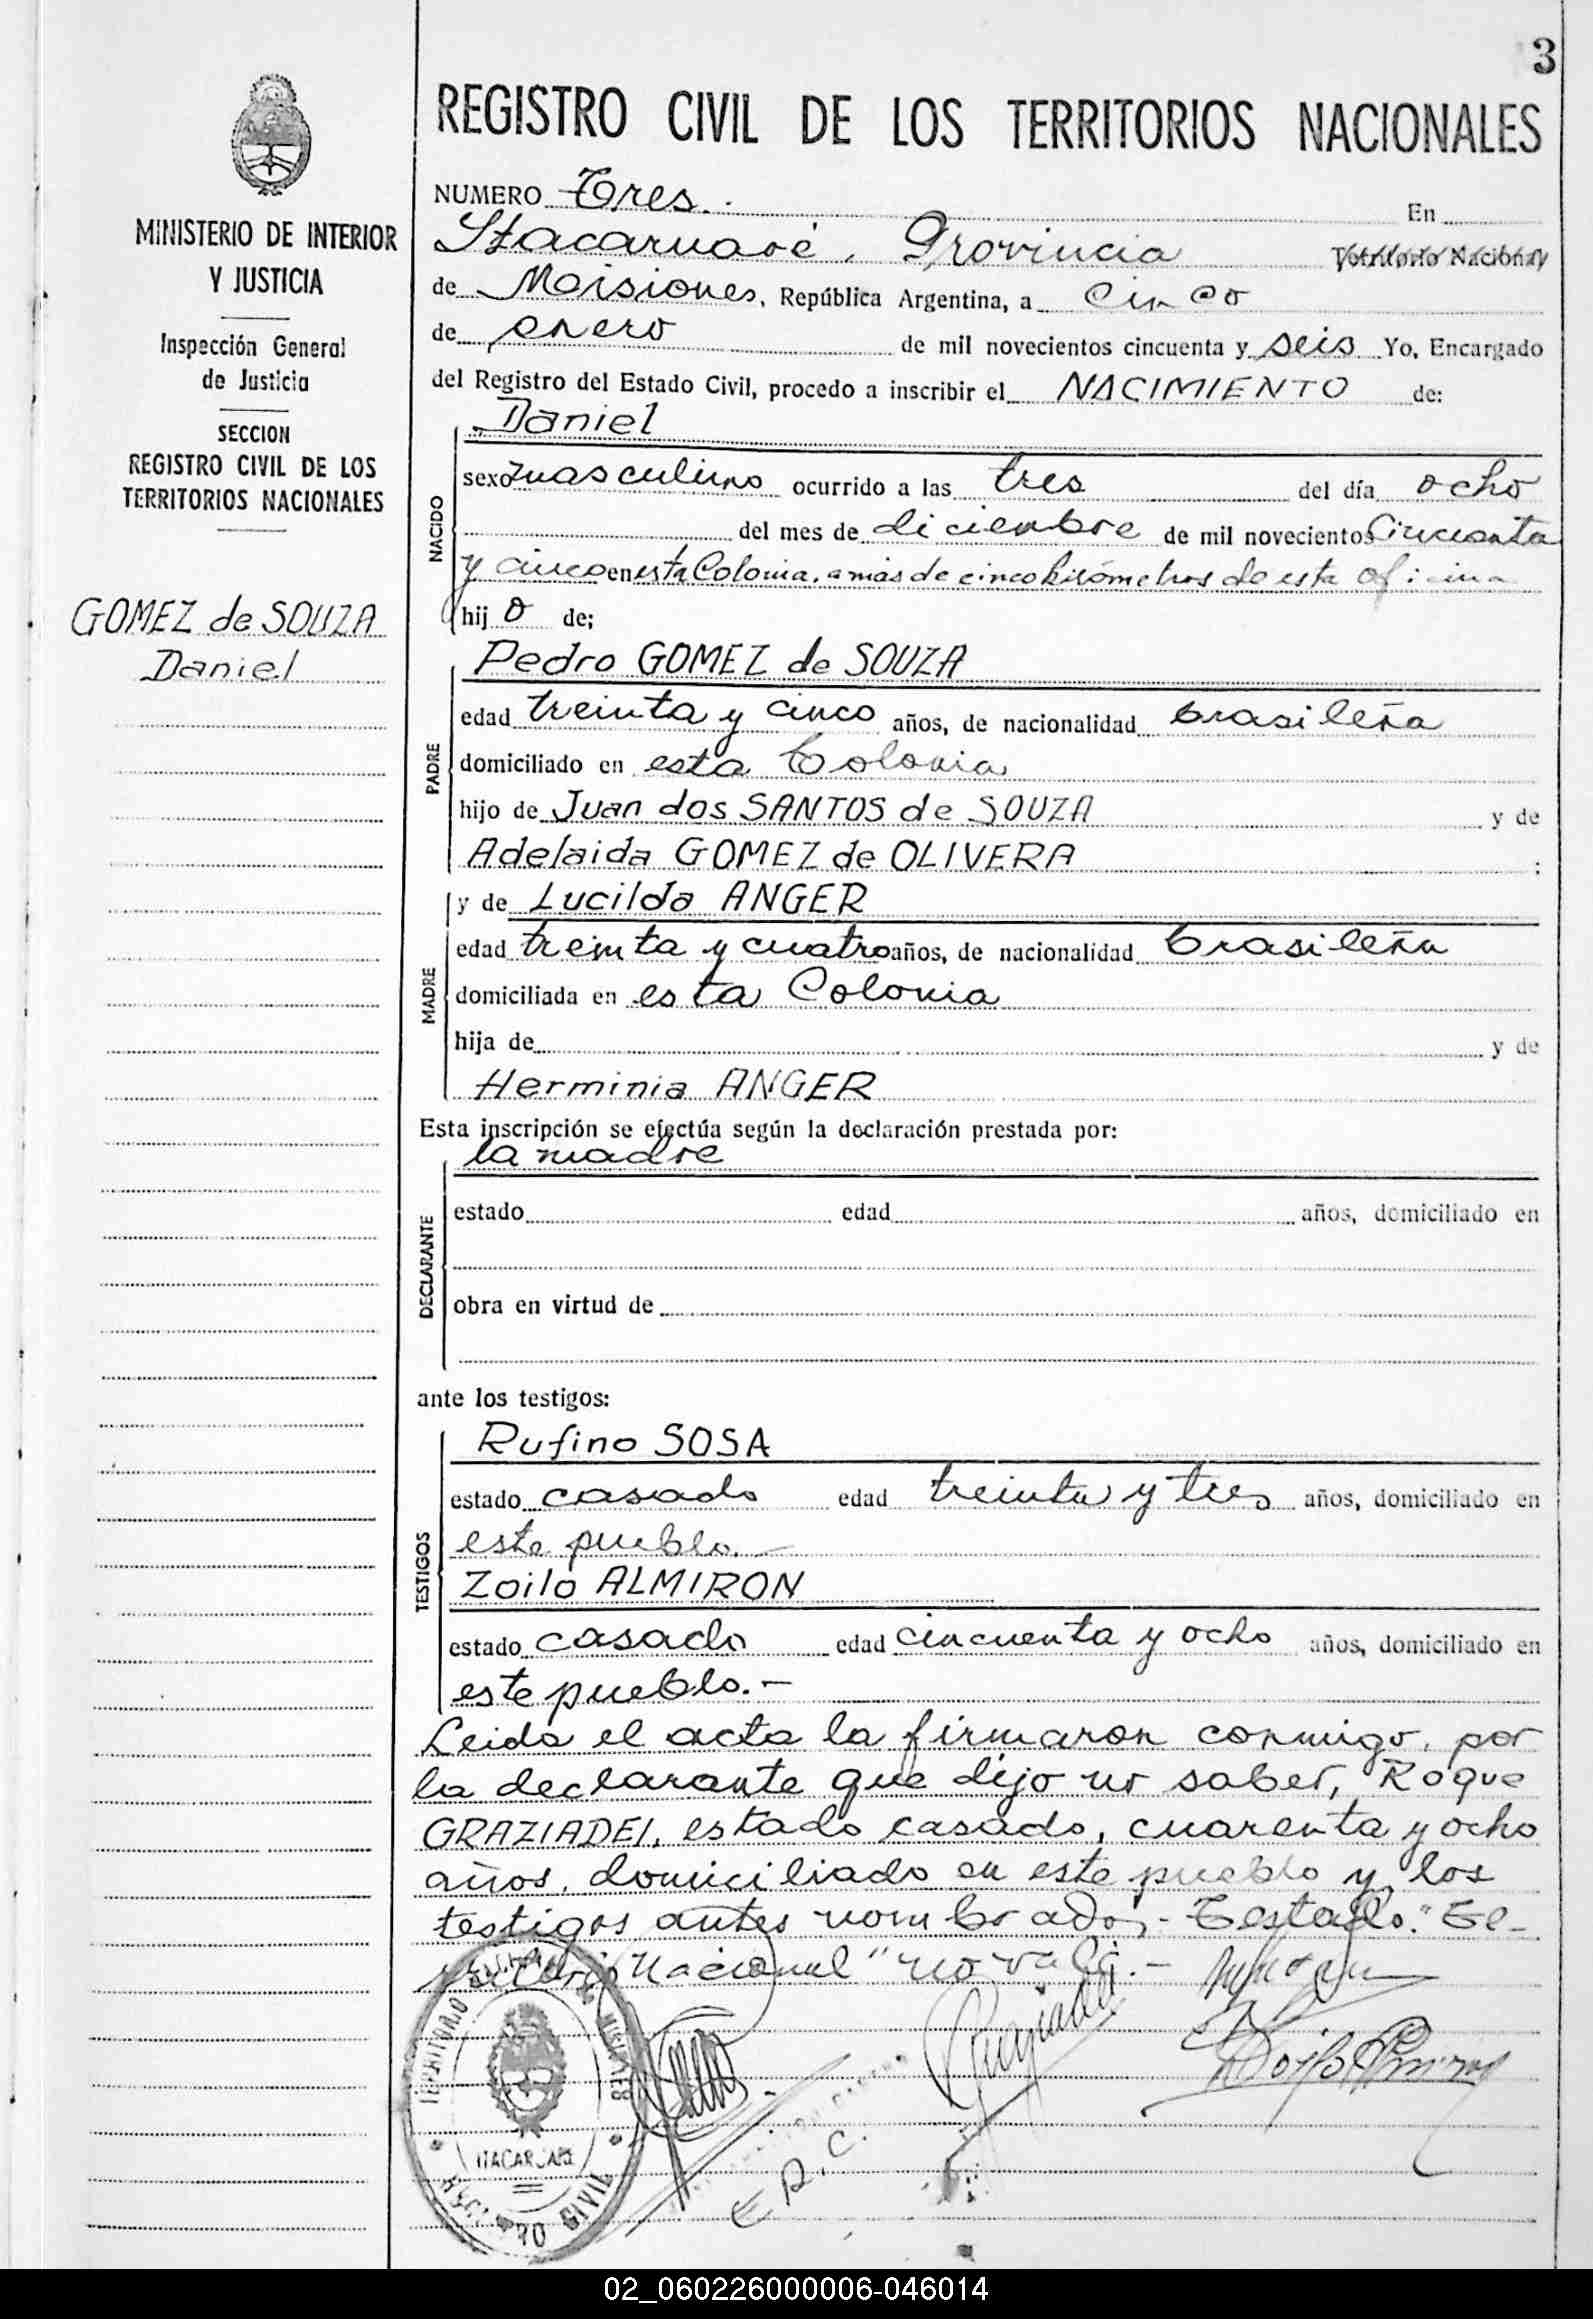 3
REGISTRO CIVIL DE LOS TERRITORIOS NACIONALES
MINISTERIO DE INTERIOR
Y JUSTICIA
Inspección General
de Justicia
SECCION
REGISTRO CIVIL DE LOS
TERRITORIOS NACIONALES
GOMEZ de SOUZA
Daniel
NUMERO Tres.- En
Itacaruaré, Provincia Territorio Nacional
de Misiones, República Argentina, a cinco
de enero de mil novecientos cincuenta y seis Yo, Encargado
del Registro del Estado Civil, procedo a inscribir el NACIMIENTO de:
NACIDO
Daniel
sexo masculino ocurrido a las tres del día ocho
del mes de diciembre de mil novecientos cincuenta
y cinco en esta Colonia, a más de cinco kilómetros de esta oficina
hijo de;
PADRE
Pedro GOMEZ de SOUZA
edad treinta y cinco años, de nacionalidad brasileña
domiciliado en esta Colonia
hijo de Juan dos SANTOS de SOUZA y de
Adelaida GOMEZ de OLIVERA ;
MADRE
y de Lucilda ANGER
edad treinta y cuatro años, de nacionalidad brasileña
domiciliada en esta Colonia
hija de y de
Herminia ANGER
Esta inscripción se efectúa según la declaración prestada por:
DECLARANTE
la madre
estado edad años, domiciliado en
obra en virtud de
ante los testigos:
TESTIGOS
Rufino SOSA
estado casado edad treinta y tres años, domiciliado en
este pueblo.-
Zoilo ALMIRON
estado casado edad cincuenta y ocho años, domiciliado en
este pueblo.-
Leida el acta la firmaron conmigo, por
la declarante que dijo no saber, Roque
GRAZIADEI, estado casado, cuarenta y ocho
años, domiciliado en este pueblo y los
testigos antes nombrados.- Testado: "Te-
rritorio Nacional" no vale.-
Graziadei
Zoilo Almiron
TERRITORIO NACIONAL DE MISIONES
ITACARUARE
REGISTRO CIVIL
E. R. C.
02_060226000006-046014